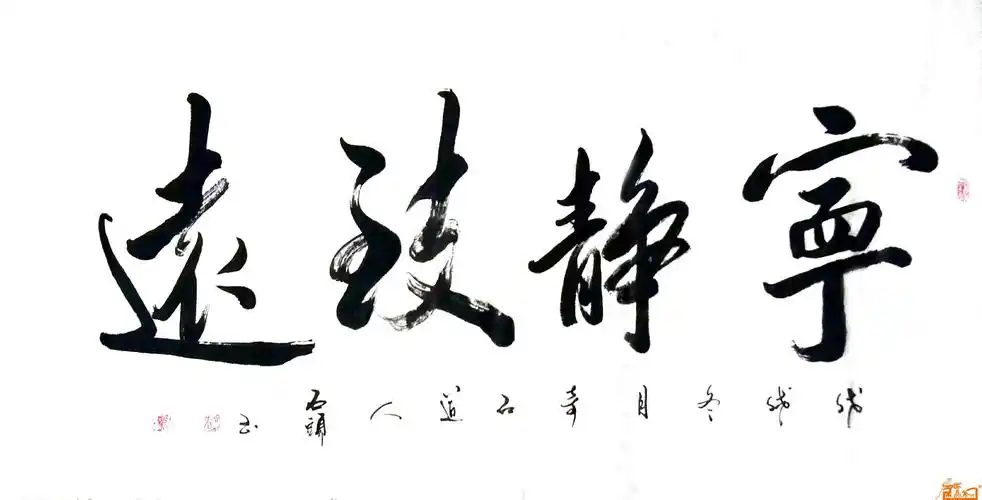 寧静致遠
戊戌冬月奇石道人石頭书